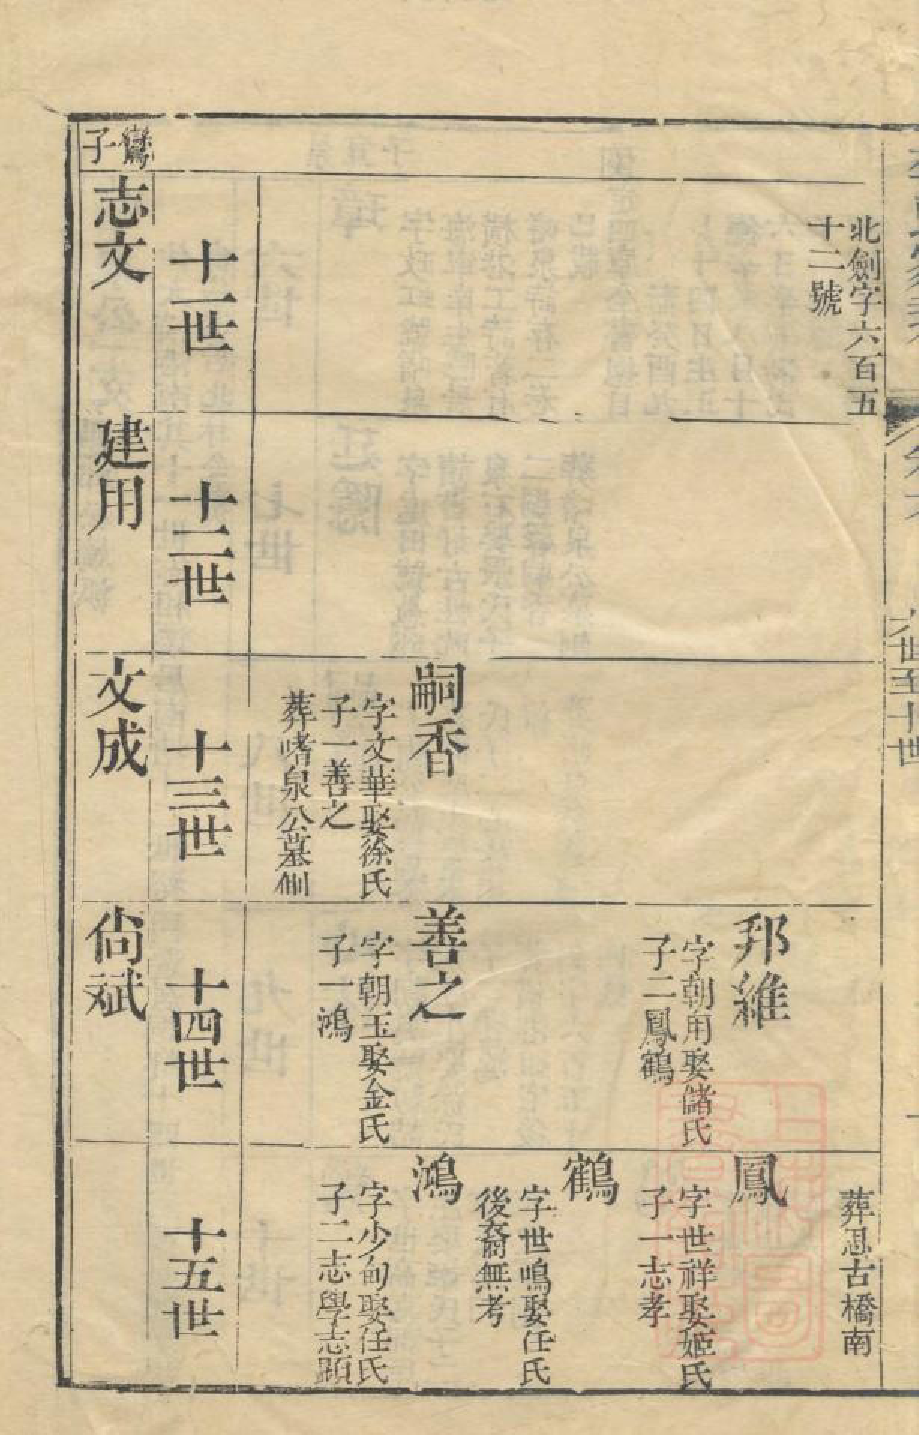 北劍字六百五
十二號
嗣香
字文華娶徐氏
子一善之
葬嗜泉公墓側
邦維
字朝用娶儲氏
子二鳳鶴
善之
字朝玉娶金氏
子一鴻
葬思古橋南
鳳
字世祥娶姬氏
子一志孝
鶴
字世鳴娶任氏
後裔無考
鴻
字少甸娶任氏
子二志學志顕
十一世
十二世
十三世
十四世
十五世
鸞子
志文
建用
文成
尙斌
六世至十世